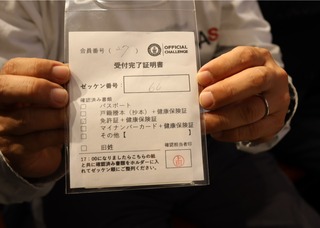 会員番号(27)
OFFICIAL
CHALLENGE
AS
受付完了証明書
ゼッケン番号
確認済み書類
□ パスポート
□ 戸籍謄本(抄本)+健康保険証
□ 免許証+健康保険証
□ マイナンバーカード+健康保険証
□ その他【 】
□ 旧姓
確認担当者印
17:00になりましたらこちらの紙
と共に確認済み書類をホルダーに入
れてゼッケン順にご整列ください。